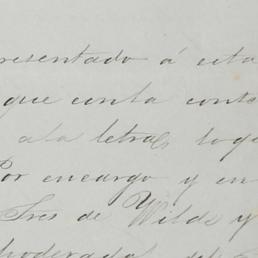 resentado á esta
que consta cont
a la letra
Por encargo y en
Sres de Wilds y
apoderado del